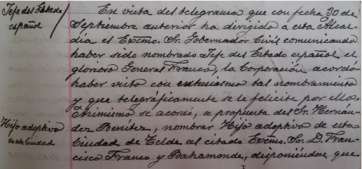 Jefe del Estado
español
En vista del telegrama que con fecha 30 de
Septiembre anterior ha dirigido a esta Alcal-
día el Excmo. Sr. Gobernador Civil comunicando
haber sido nombrado Jefe del Estado español el
glorioso General Franco, la Corporación acordó
haber visto con entusiasmo tal nombramiento
y que telegráficamente se le felicite por ello.
Hijo adoptivo
de esta Ciudad
Asimismo se acordó, a propuesta del Sr. Hernán-
dez Benítez, nombrar Hijo adoptivo de esta
Ciudad de Telde al citado Excmo. Sr. D. Fran-
cisco Franco y Bahamonde, disponiéndose que